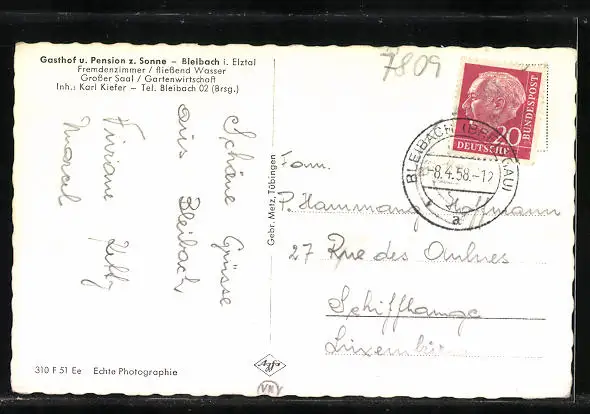 Gasthof u. Pension z. Sonne – Bleibach i. Elztal
Fremdenzimmer / fließend Wasser
Großer Saal / Gartenwirtschaft
Inh.: Karl Kiefer – Tel. Bleibach 02 (Brsg.)
Schöne Grüsse
aus Bleibach
Viviane
Marcel
310 F 51 Ee Echte Photographie
Gebr. Metz, Tübingen
Agfa
VN
7809
20
DEUTSCHE BUNDESPOST
BLEIBACH
-8.4.58.-12
a
Fam.
P. Hammang Hoffmann
27 Rue des Aulnes
Schifflange
Luxembourg